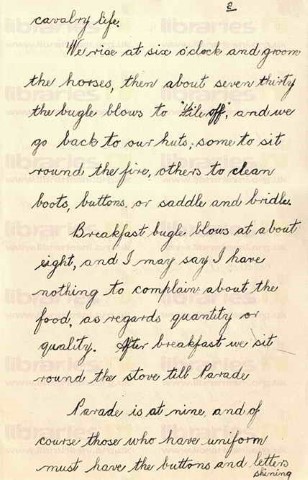 2
cavalry life.
We rise at six o'clock and groom
the horses, then about seven thirty
the bugle blows to "File off", and we
go back to our huts; some to sit
round the fire, others to clean
boots, buttons, or saddle and bridle.
Breakfast bugle blows at about
eight, and I may say I have
nothing to complain about the
food, as regards quantity or
quality. After breakfast we sit
round the stove till Parade
Parade is at nine, and of
course those who have uniform
must have the buttons and letters
shining
libraries